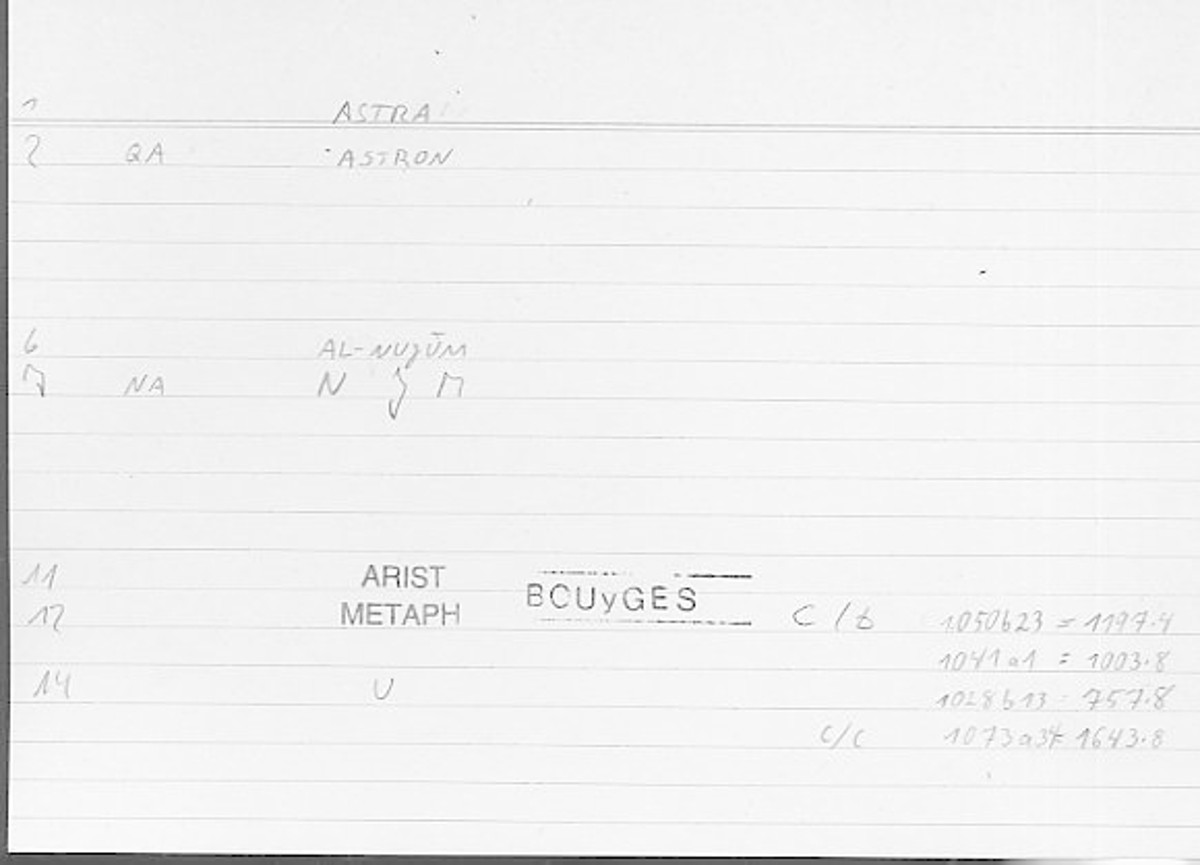 1 ASTRA
2 QA ASTRON
6 AL-NUJŪM
7 NA N J M
11 ARIST BOUyGES
12 METAPH C/b 1050b23 = 1197.4
1041a1 = 1003.8
14 U 1028b13 = 757.8
C/C 1073a34 = 1643.8